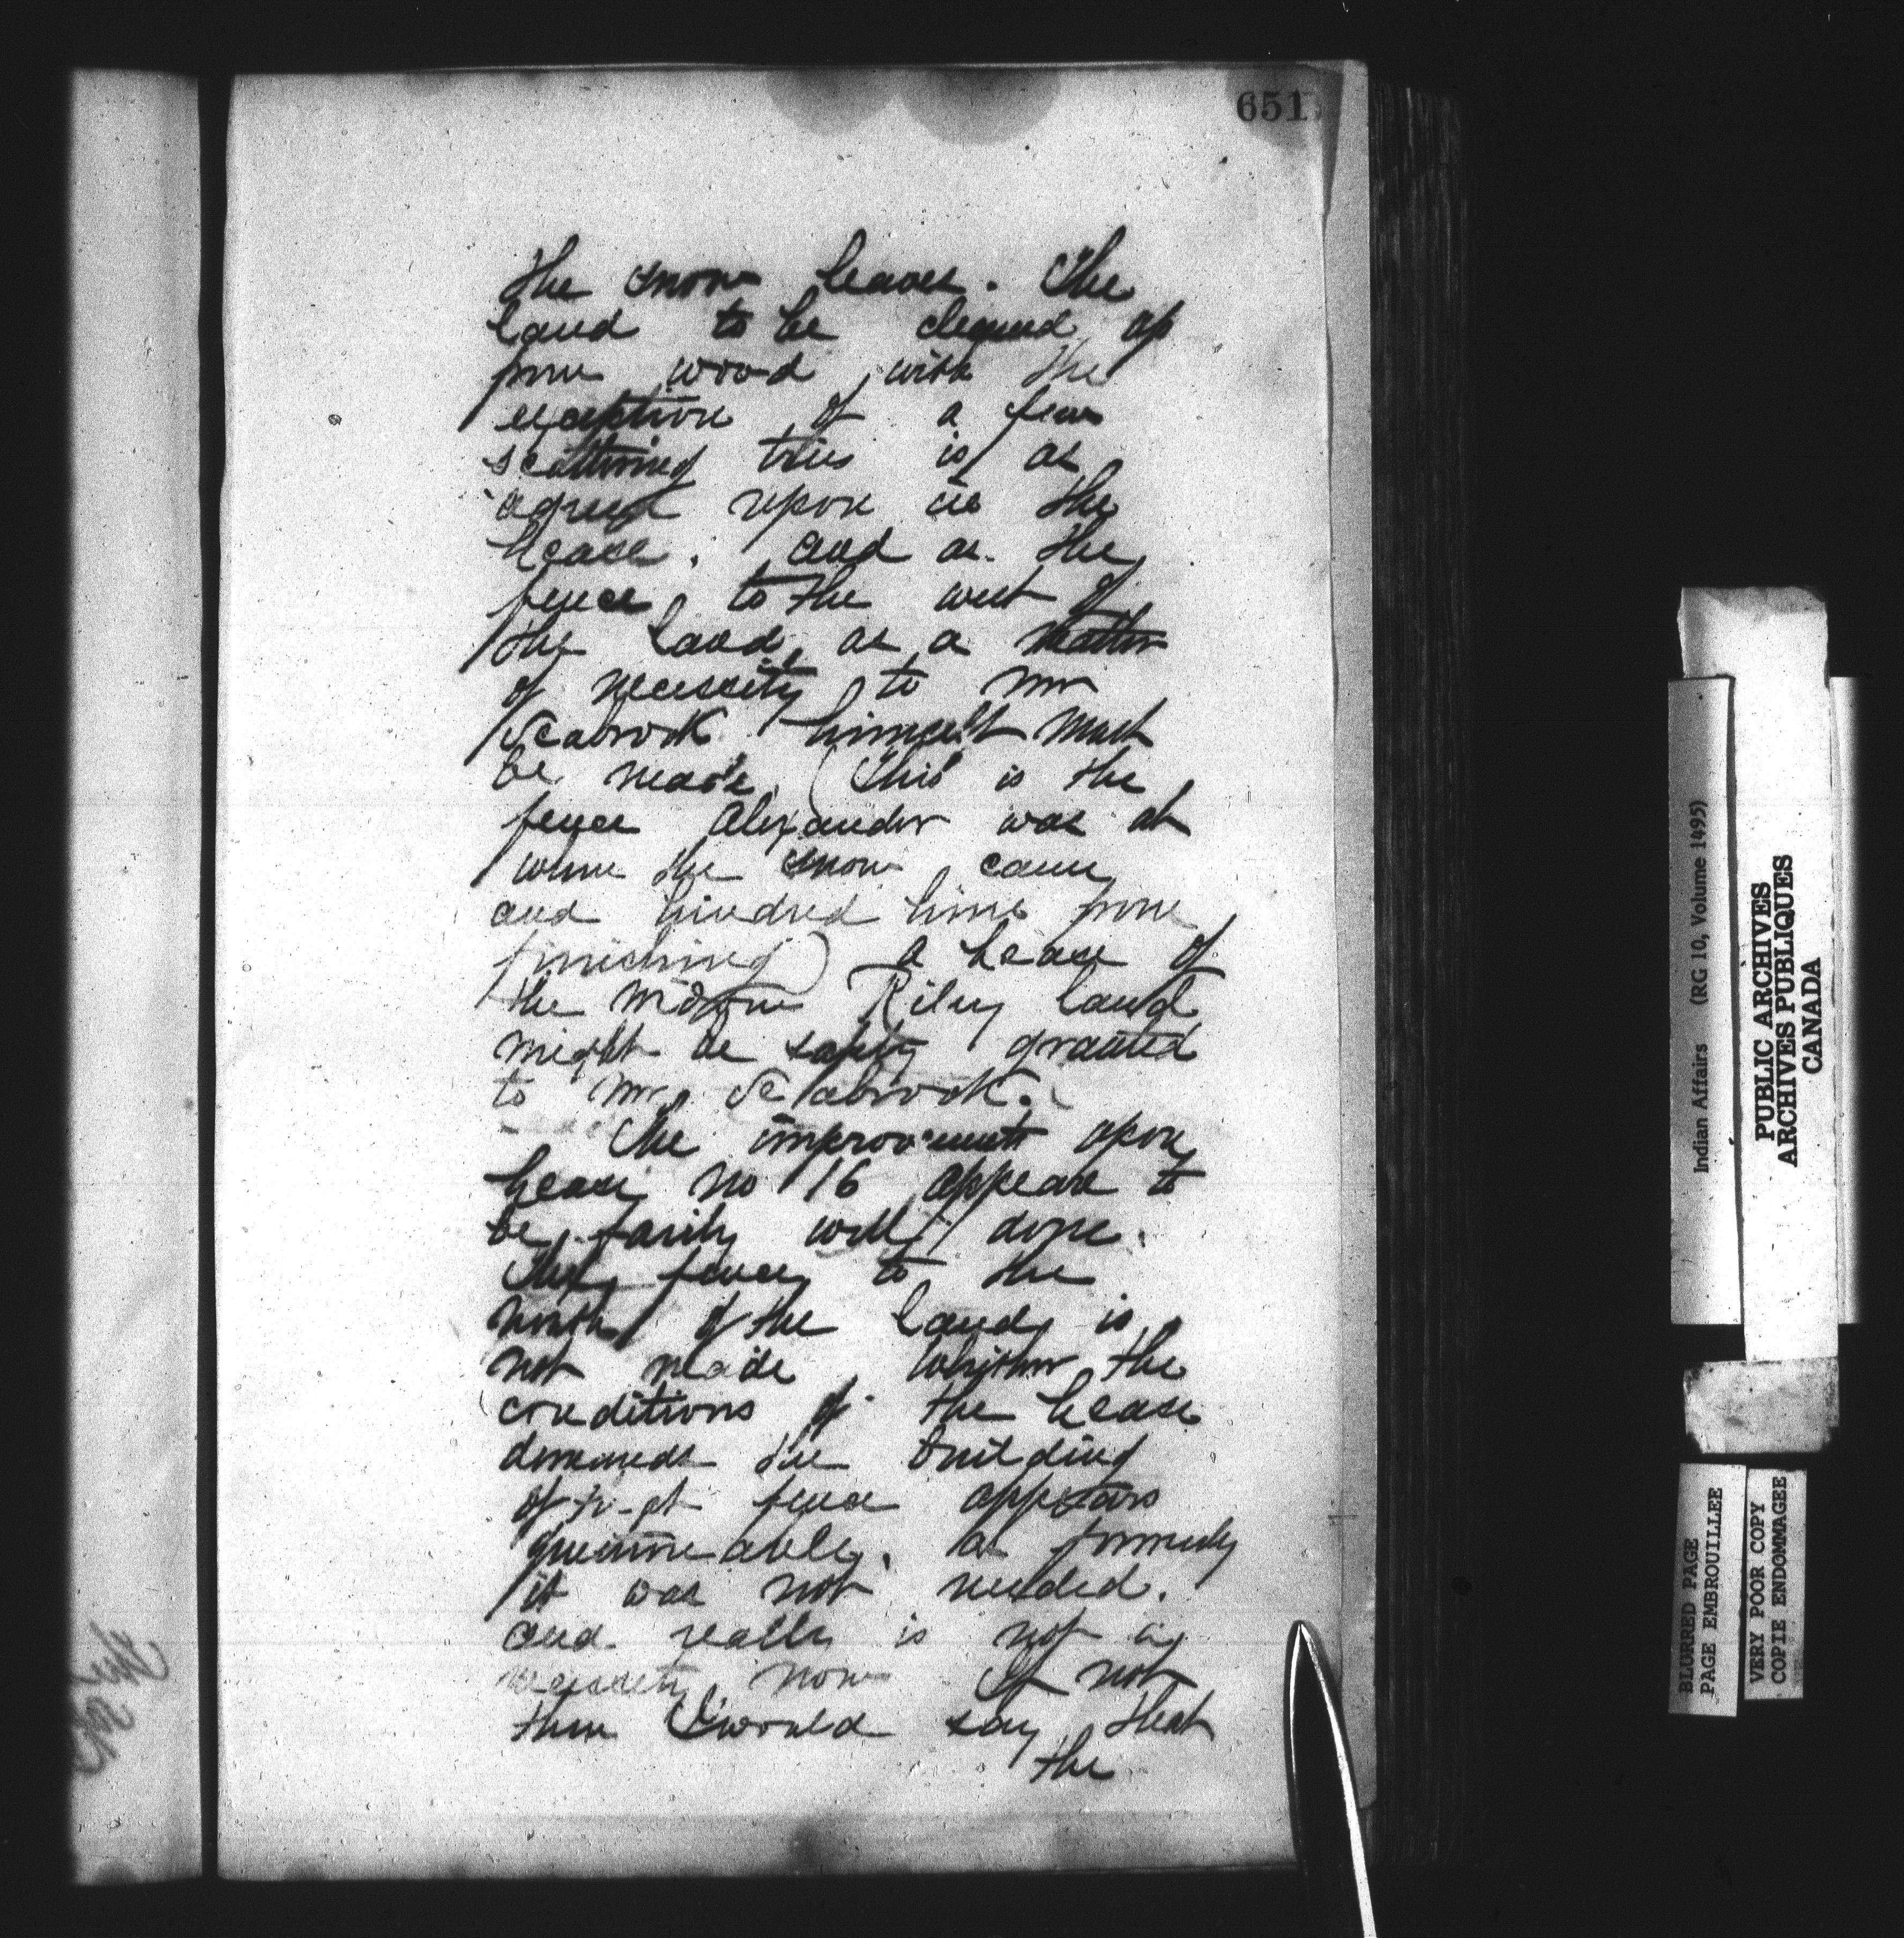 651
the snow leaves. The
land to be cleared of
pine wood with the
exception of a few
scattering trees is as
agreed upon in the
lease. and as the
fence to the west of
the land, as a matter
of necessity to Mr
Seabrook himself must
be made. (This is the
fence Alexander was at
when the snow came
and hindred him from
finishing) a lease of
the Riley land
might be safely granted
to Mr. Seabrook.
The improvements upon
lease no 16 appear to
be fairly well done.
The fence to the
north of the land is
not made whither the
conditions of the lease
demands the building
of fence appears
as formerly
it was not needed.
and really is not a
necessity now If not
then I would say that
the
Indian Affairs (RG 10, Volume 1495)
PUBLIC ARCHIVES
ARCHIVES PUBLIQUES
CANADA
BLURRED PAGE
PAGE EMBROUILLEE
VERY POOR COPY
COPIE ENDOMMAGEE